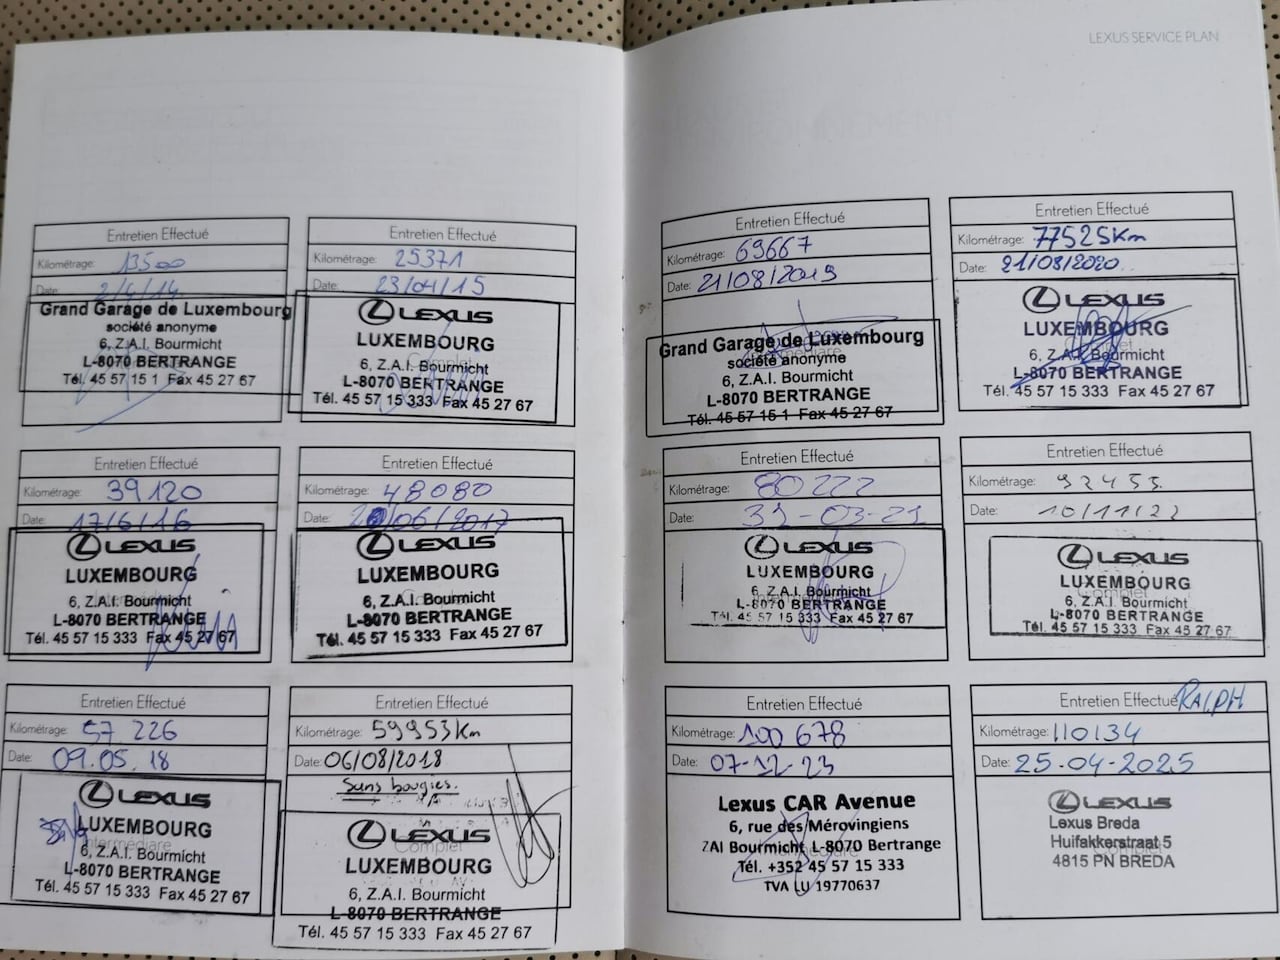 LEXUS SERVICE PLAN
Entretien Effectué
Kilométrage: 13500
Date: 2/4/14
Grand Garage de Luxembourg
société anonyme
6, Z.A.I. Bourmicht
L-8070 BERTRANGE
Tél. 45 57 15 1 Fax 45 27 67
Entretien Effectué
Kilométrage: 25371
Date: 23/04/15
LEXUS
LUXEMBOURG
Complet
6, Z.A.I. Bourmicht
L-8070 BERTRANGE
Tél. 45 57 15 333 Fax 45 27 67
Entretien Effectué
Kilométrage: 39120
Date: 17/6/16
LEXUS
LUXEMBOURG
6, Z.A.I. Bourmicht
L-8070 BERTRANGE
Tél. 45 57 15 333 Fax 45 27 67
Entretien Effectué
Kilométrage: 48080
Date: 20/06/2017
LEXUS
LUXEMBOURG
6, Z.A.I. Bourmicht
L-8070 BERTRANGE
Tél. 45 57 15 333 Fax 45 27 67
Entretien Effectué
Kilométrage: 57 226
Date: 09.05.18
LEXUS
LUXEMBOURG
Intermédiaire
6, Z.A.I. Bourmicht
L-8070 BERTRANGE
Tél. 45 57 15 333 Fax 45 27 67
Entretien Effectué
Kilométrage: 59953Km
Date: 06/08/2018
Sans bougies.
LEXUS
Complet
LUXEMBOURG
6, Z.A.I. Bourmicht
L-8070 BERTRANGE
Tél. 45 57 15 333 Fax 45 27 67
Entretien Effectué
Kilométrage: 69667
Date: 21/08/2019
Grand Garage de Luxembourg
Intermédiaire
société anonyme
6, Z.A.I. Bourmicht
L-8070 BERTRANGE
Tél. 45 57 15 1 Fax 45 27 67
Entretien Effectué
Kilométrage: 77525Km
Date: 21/08/2020
LEXUS
LUXEMBOURG
Complet
6, Z.A.I. Bourmicht
L-8070 BERTRANGE
Tél. 45 57 15 333 Fax 45 27 67
Entretien Effectué
Kilométrage: 80222
Date: 31-03-21
LEXUS
LUXEMBOURG
6, Z.A.I. Bourmicht
L-8070 BERTRANGE
Tél. 45 57 15 333 Fax 45 27 67
Entretien Effectué
Kilométrage: 92455
Date: 10/11/22
LEXUS
LUXEMBOURG
Complet
6, Z.A.I. Bourmicht
L-8070 BERTRANGE
Tél. 45 57 15 333 Fax 45 27 67
Entretien Effectué
Kilométrage: 100 678
Date: 07-12-23
Lexus CAR Avenue
6, rue des Mérovingiens
ZAI Bourmicht L-8070 Bertrange
Tél. +352 45 57 15 333
TVA LU 19770637
Entretien Effectué RALPH
Kilométrage: 110134
Date: 25-04-2025
LEXUS
Lexus Breda
Huifakkerstraat 5
Complet
4815 PN BREDA